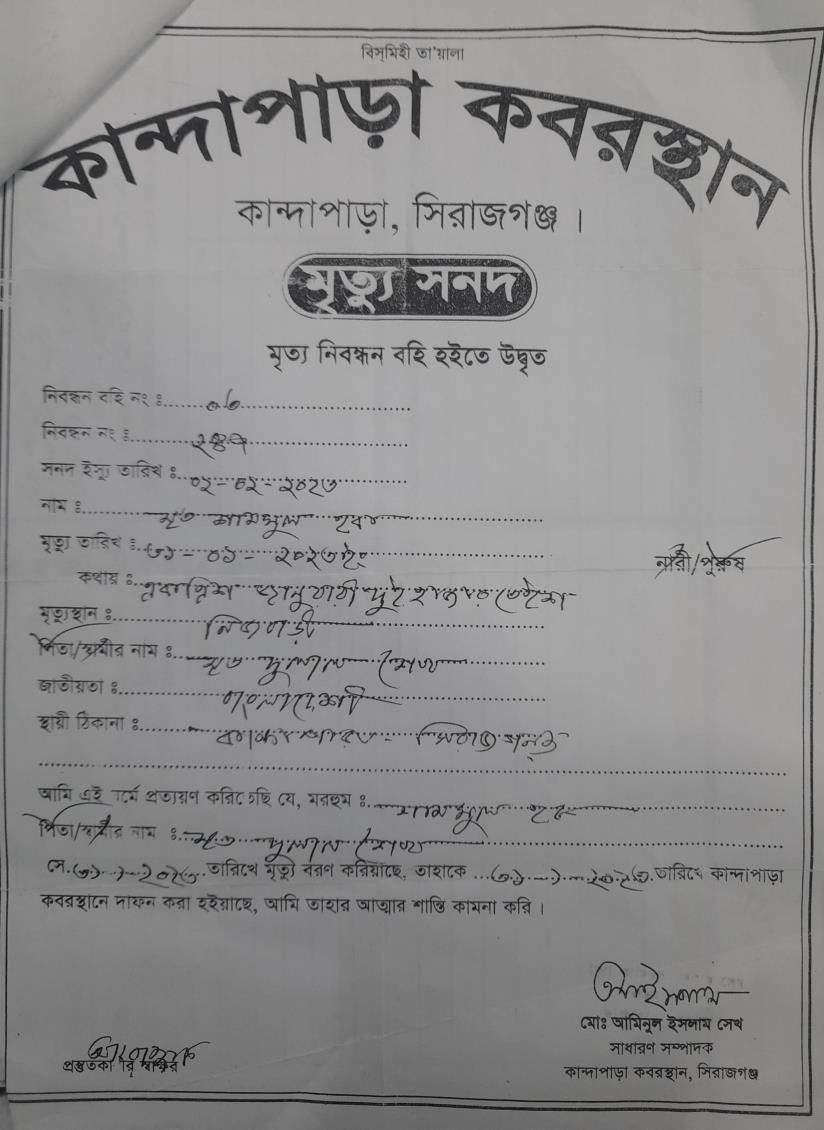 বিসমিহী তা'য়ালা
কান্দাপাড়া কবরস্থান
কান্দাপাড়া, সিরাজগঞ্জ।
মৃত্যু সনদ
মৃত্য নিবন্ধন বহি হইতে উদ্ধৃত
নিবন্ধন বহি নং ঃ ০৬
নিবন্ধন নং ঃ
সনদ ইস্যু তারিখ ঃ ০২-০২-২০২৩
নাম ঃ মৃত শামসুল হক
মৃত্যু তারিখ ঃ ৩১-০১-২০২৩ইং নারী/পুরুষ
কথায় ঃ একত্রিশ জানুয়ারী দুই হাজার তেইশ
মৃত্যুস্থান ঃ নিজ বাড়ী
পিতা/স্বামীর নাম ঃ মৃত দুলাল সেখ
জাতীয়তা ঃ বাংলাদেশী
স্থায়ী ঠিকানা ঃ সিরাজগঞ্জ
আমি এই মর্মে প্রত্যয়ণ করিতেছি যে, মরহুম ঃ শামসুল হক
পিতা/স্বামীর নাম ঃ মৃত দুলাল সেখ
সে ৩১-১-২০২৩ তারিখে মৃত্যু বরণ করিয়াছে, তাহাকে ৩১-১-২০২৩ তারিখে কান্দাপাড়া
কবরস্থানে দাফন করা হইয়াছে, আমি তাহার আত্মার শান্তি কামনা করি।
মোঃ আমিনুল ইসলাম সেখ
সাধারণ সম্পাদক
কান্দাপাড়া কবরস্থান, সিরাজগঞ্জ
প্রস্তুতকারীর স্বাক্ষর